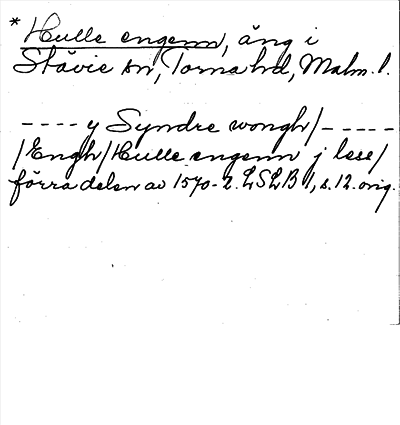 * Hulle engenn, äng i
Stävie sn, Torna hd, Malm. l.
---- y Syndre wongh/-----
/Engh/Hulle engenn j less/
förra delen av 1570-t. LSLB 1, s. 12. orig.